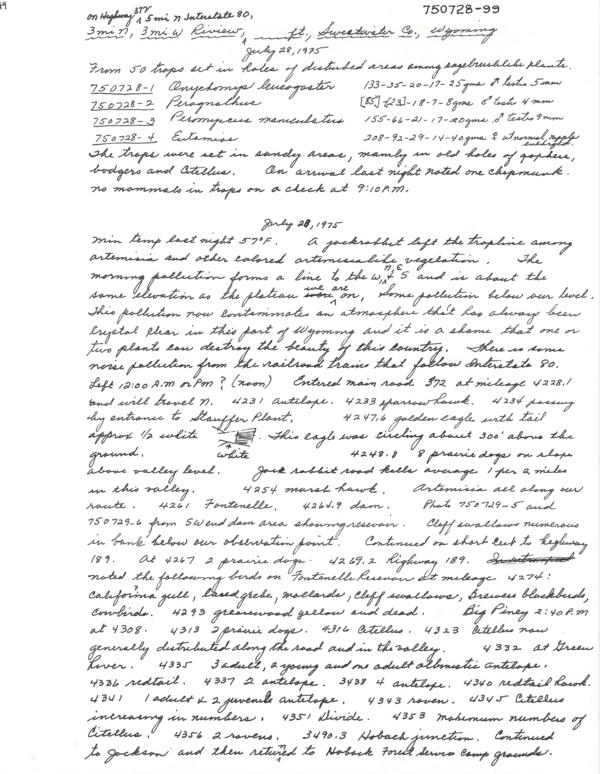 on Highway 372 5 mi n Interstate 80,
750728-99
3 mi N, 3 mi W Riview, ft., Sweetwater Co., Wyoming
July 28, 1975
From 50 traps set in holes of disturbed areas among sagebrushlike plants.
750728-1 Onychomys leucogaster 133-35-20-17-25gms ♂ testis 5mm
750728-2 Perognathus [85]-[23]-18-7-8gms ♂ testis 4 mm
750728-3 Peromyscus maniculatus 155-66-21-17-20gms ♂ testis 9mm
750728-4 Eutamias 208-92-29-14-40gms ♀ ut normal, nipple enlarged.
The traps were set in sandy areas, mainly in old holes of gophers,
badgers and Citellus. On arrival last night noted one chipmunk.
no mammals in traps on a check at 9:10 P.M.
July 28, 1975
Min temp last night 57°F. A jackrabbit left the trapline among
artemisia and other colored artemisialike vegetation. The
morning pollution forms a line to the W, N, E & S and is about the
same elevation as the plateau we are on, Some pollution below our level.
This pollution now contaminates an atmosphere that has always been
crystal clear in this part of Wyoming and it is a shame that one or
two plants can destroy the beauty of this country. There is some
noise pollution from the railroad trains that follow Interstate 80.
Left 12:00 A.M or PM? (noon) Entered main road 372 at mileage 4228.1
and will travel N. 4231 antelope. 4233 sparrow hawk. 4234 passing
by entrance to Stauffer Plant, 4247.6 golden eagle with tail
approx 1/2 white white. This eagle was circling about 300' above the
ground. 4248.8 8 prairie dogs on slope
above valley level. Jack rabbit road kills average 1 per 2 miles
in this valley. 4254 marsh hawk. Artemisia all along our
route. 4261 Fontenelle. 4264.9 dam. Photo 750729-5 and
750729-6 from SW end dam area showing reservoir. Cliff swallows numerous
in bank below our observation point. Continued on short cut to highway
189. At 4267 2 prairie dogs. 4269.2 Highway 189.
noted the following birds on Fontenelle Reservoir at mileage 4274:
California? gull, Eared grebe, mallards, cliff swallows, Brewers blackbirds,
Cowbirds. 4293 greasewood yellow and dead. Big Piney 2:40 P.M
at 4308. 4313 2 prairie dogs. 4316 Citellus. 4323 Citellus now
generally distributed along the road and in the valley. 4332 at Green
River. 4335 3 adult, 2 young and one adult albinistic antelope.
4336 redtail. 4337 2 antelope. 3438 4 antelope. 4340 redtail hawk.
4341 1 adult & 2 juvenile antelope. 4343 raven. 4345 Citellus
increasing in numbers. 4351 Divide. 4353 maximum numbers of
Citellus. 4356 2 ravens. 3490.3 Hoback junction. Continued
to Jackson and then returned? to Hoback Forest Service Camp grounds.